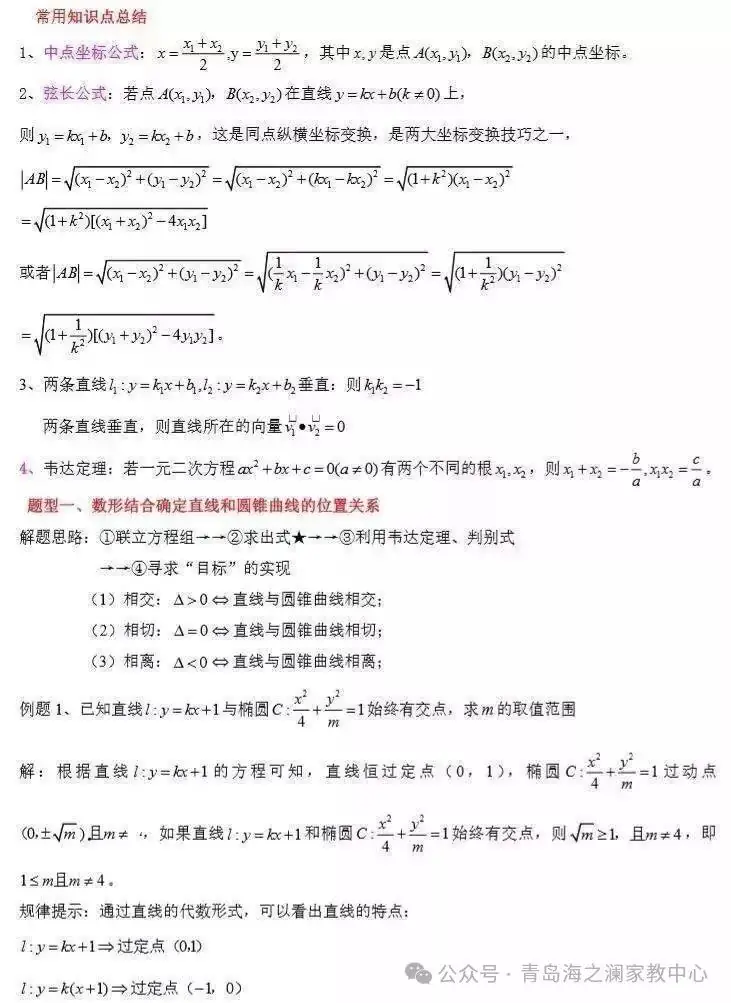 常用知识点总结
1、中点坐标公式：x = (x₁ + x₂)/2, y = (y₁ + y₂)/2，其中 x, y 是点 A(x₁, y₁)，B(x₂, y₂) 的中点坐标。
2、弦长公式：若点 A(x₁, y₁)，B(x₂, y₂) 在直线 y = kx + b(k ≠ 0) 上，
则 y₁ = kx₁ + b，y₂ = kx₂ + b，这是同点纵横坐标变换，是两大坐标变换技巧之一，
|AB| = √((x₁ − x₂)² + (y₁ − y₂)²) = √((x₁ − x₂)² + (kx₁ − kx₂)²) = √((1 + k²)(x₁ − x₂)²)
= √((1 + k²)[(x₁ + x₂)² − 4x₁x₂])
或者 |AB| = √((x₁ − x₂)² + (y₁ − y₂)²) = √((1/k x₁ − 1/k x₂)² + (y₁ − y₂)²) = √((1 + 1/k²)(y₁ − y₂)²)
= √((1 + 1/k²)[(y₁ + y₂)² − 4y₁y₂])。
3、两条直线 l₁ : y = k₁x + b₁, l₂ : y = k₂x + b₂ 垂直：则 k₁k₂ = −1
两条直线垂直，则直线所在的向量 v₁ • v₂ = 0
4、韦达定理：若一元二次方程 ax² + bx + c = 0(a ≠ 0) 有两个不同的根 x₁, x₂，则 x₁ + x₂ = −b/a, x₁x₂ = c/a。
题型一、数形结合确定直线和圆锥曲线的位置关系
解题思路：①联立方程组→→②求出式★→→③利用韦达定理、判别式
→→④寻求“目标”的实现
（1）相交：Δ > 0 ⇔ 直线与圆锥曲线相交；
（2）相切：Δ = 0 ⇔ 直线与圆锥曲线相切；
（3）相离：Δ < 0 ⇔ 直线与圆锥曲线相离；
例题 1、已知直线 l : y = kx + 1 与椭圆 C : x²/4 + y²/m = 1 始终有交点，求 m 的取值范围
解：根据直线 l : y = kx + 1 的方程可知，直线恒过定点（0，1），椭圆 C : x²/4 + y²/m = 1 过动点
(0, ±√m)，且 m ≠ ，如果直线 l : y = kx + 1 和椭圆 C : x²/4 + y²/m = 1 始终有交点，则 √m ≥ 1，且 m ≠ 4，即
1 ≤ m 且 m ≠ 4。
规律提示：通过直线的代数形式，可以看出直线的特点：
l : y = kx + 1 ⇒ 过定点 (0, 1)
l : y = k(x + 1) ⇒ 过定点（−1，0）
公众号 · 青岛海之澜家教中心